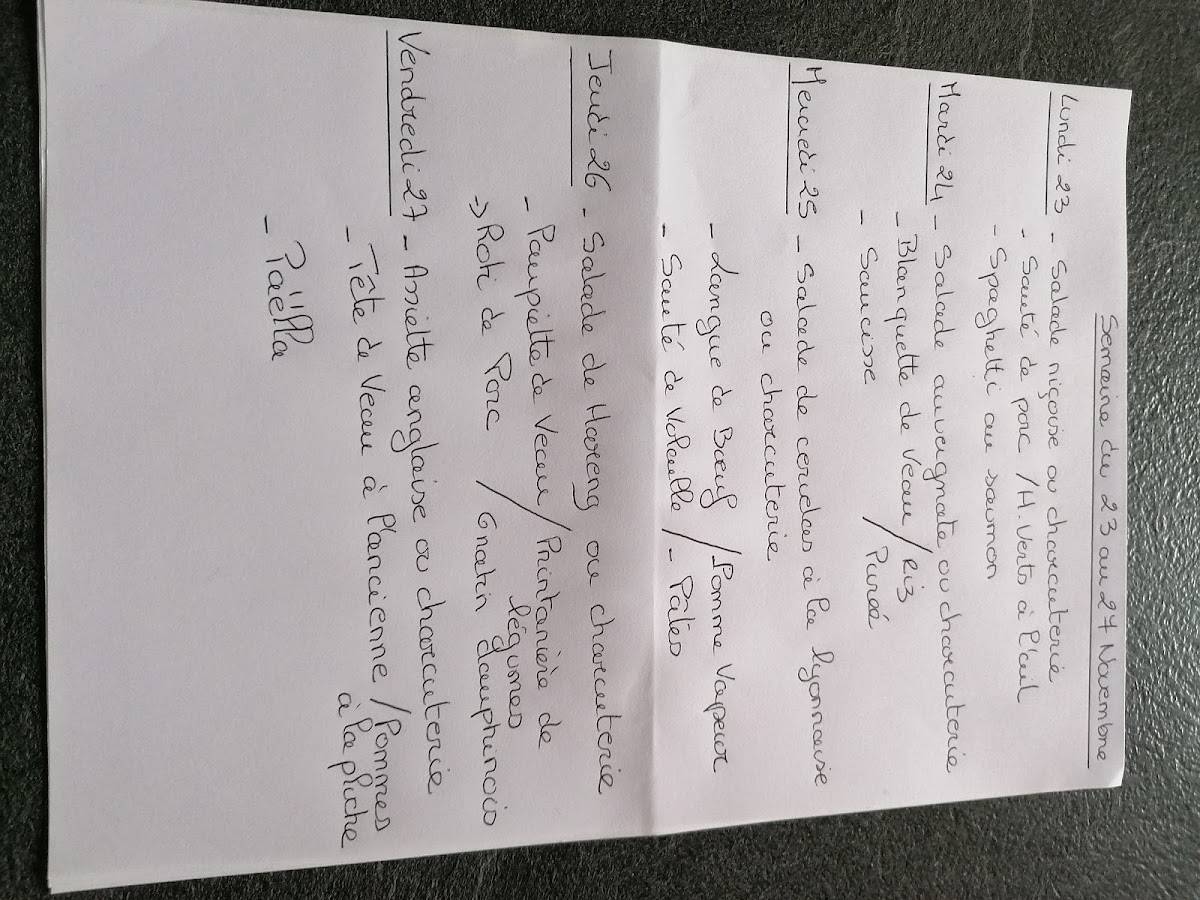 Semaine du 23 au 27 Novembre
Lundi 23 - Salade niçoise ou charcuterie
- Sauté de porc / H. Verts à l'ail
- Spaghetti au saumon
Mardi 24 - Salade auvergnate ou charcuterie
- Blanquette de Veau / Riz
- Saucisse / Purée
Mercredi 25 - Salade de cervelas à la lyonnaise
ou charcuterie
- Langue de Bœuf / Pomme Vapeur
- Sauté de Volaille / - Pâtes
Jeudi 26 - Salade de Hareng ou charcuterie
- Paupiette de Veau / Printanière de
légumes
-> Roti de Porc / Gratin dauphinois
Vendredi 27 - Assiette anglaise ou charcuterie
- Tête de Veau à l'ancienne / Pommes
à la pluche
- Paëlla